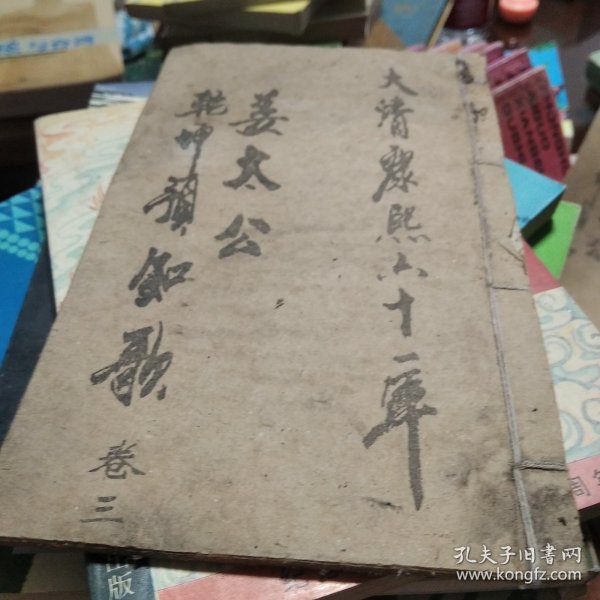 大清康熙六十一年
姜太公
乾坤预知歌
卷三
出版
周年
孔夫子旧书网
www.kongfz.com